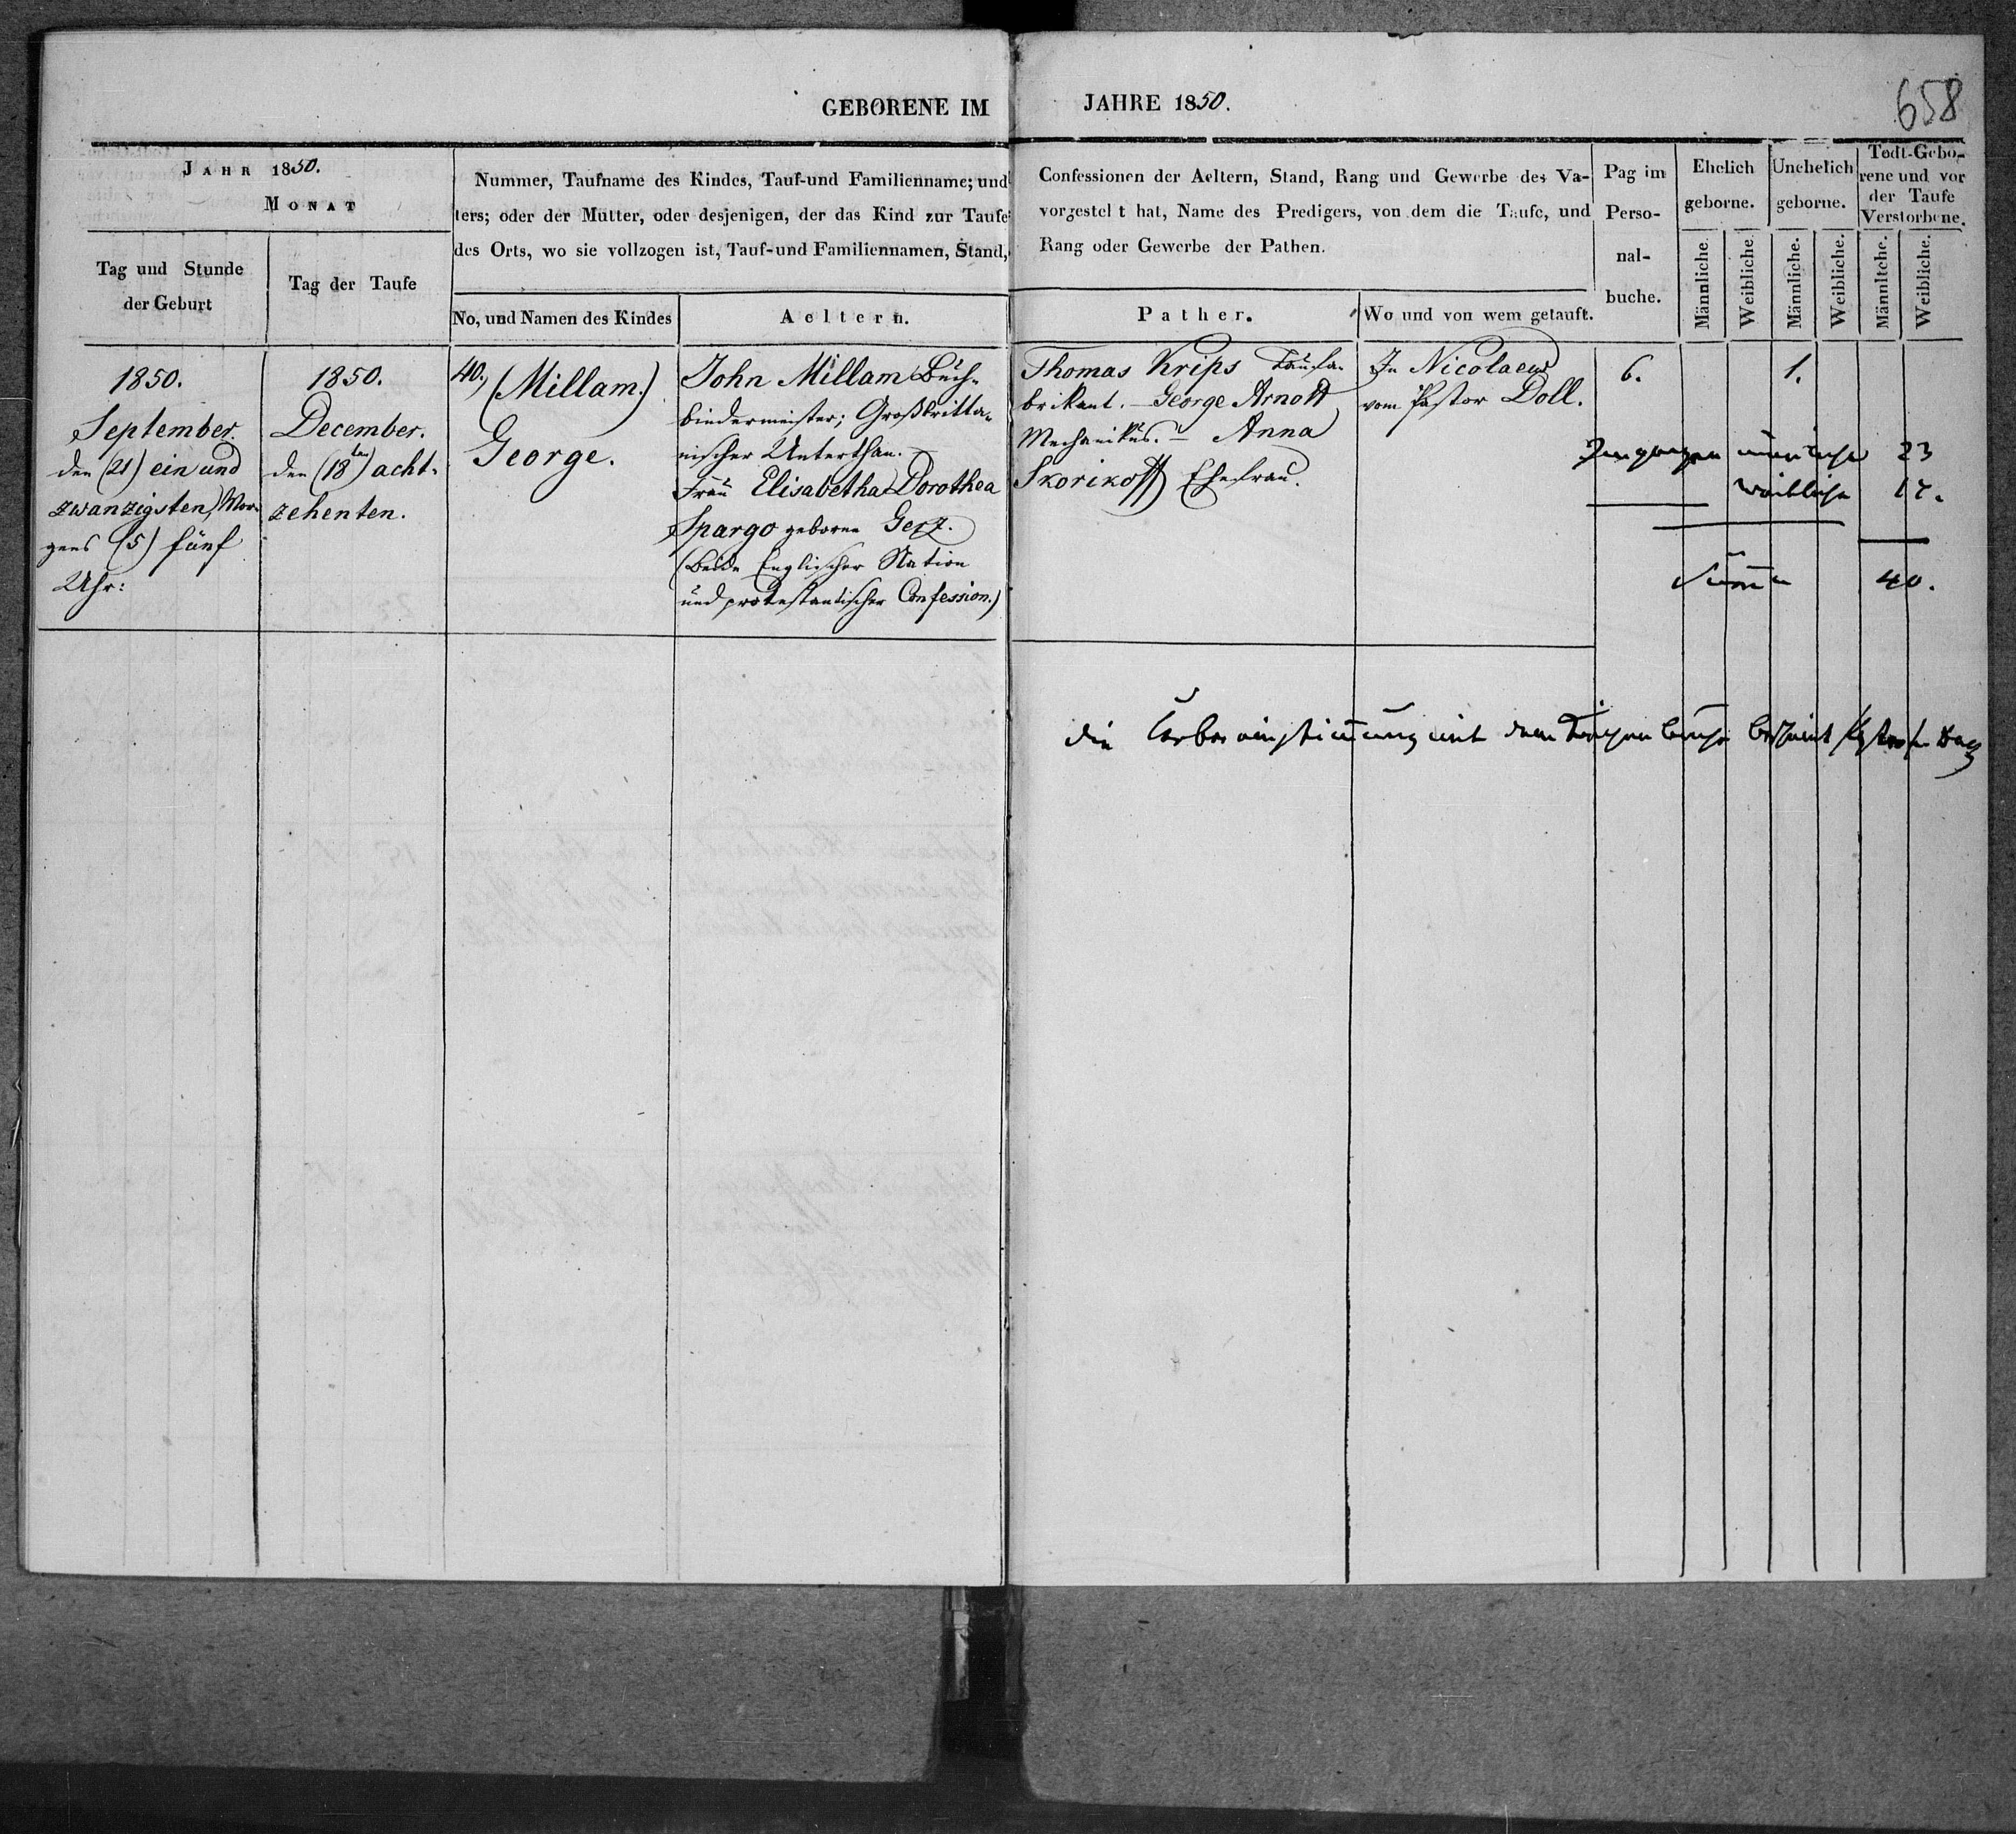 GEBORENE IM JAHRE 1850.
658
JAHR 1850.
MONAT
Tag und Stunde
der Geburt
Tag der Taufe
Nummer, Taufname des Kindes, Tauf-und Familienname; und
ters; oder der Mutter, oder desjenigen, der das Kind zur Taufe
des Orts, wo sie vollzogen ist, Tauf-und Familiennamen, Stand,
No, und Namen des Kindes
Aeltern.
Confessionen der Aeltern, Stand, Rang und Gewerbe des Va-
vorgestel t hat, Name des Predigers, von dem die Taufe, und
Rang oder Gewerbe der Pathen.
Pather.
Wo und von wem getauft.
Pag im
Perso-
nal-
buche.
Ehelich
geborne.
Unehelich
geborne.
Todt-Gebo-
rene und vor
der Taufe
Verstorbene.
Männliche.
Weibliche.
Männliche.
Weibliche.
Männliche.
Weibliche.
1850.
September.
den (21) ein und
zwanzigsten, Mor-
gens (5) fünf
Uhr:
1850.
December.
den (18ten) acht-
zehenten.
40.) (Millam.)
George.
John Millam Buch-
bindermeister; Großbritta-
nischer Unterthan. -
Frau Elisabetha Dorothea
Spargo geborne Gerz.
(Beide Englischer Nation
und protestantischer Confession.)
Thomas Krips Taufa-
brikant. - George Arnott
Mechanikus. - Anna
Skorikoff Ehefrau.
In Nicolaew
vom Pastor Doll.
6.
1.
männliche 23
weibliche 17.
Summa 40.
die Uebereinstimmung mit dem Kirchenbuche bezeugt